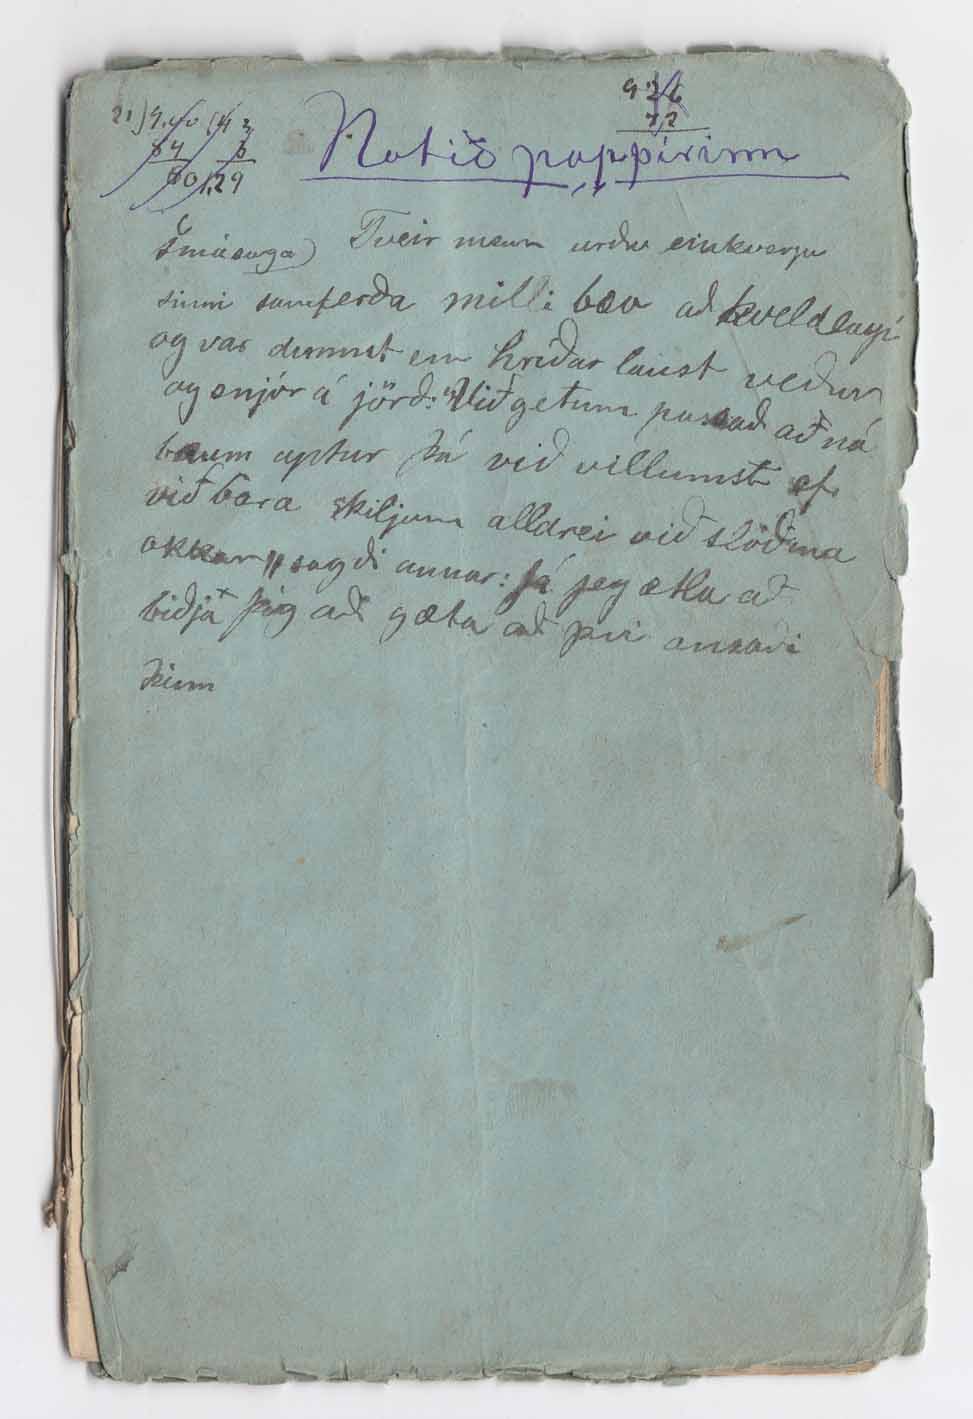 21) 9,40 (4 3
84 3
80 1,29
926
72
Notið pappírinn
Smásaga) Tveir menn urðu einhverju
sinni samferða milli bæa að kveldlagi
og var dimmt en hríðar laust veður
og snjór á jörð: "Við getum passað að ná
bænum aptur þá við villumst ef
við bara skiljum alldrei við slóðina
okkar" sagði annar: Já jeg ætla að
biðja þig að gæta að því ansaði
hinn